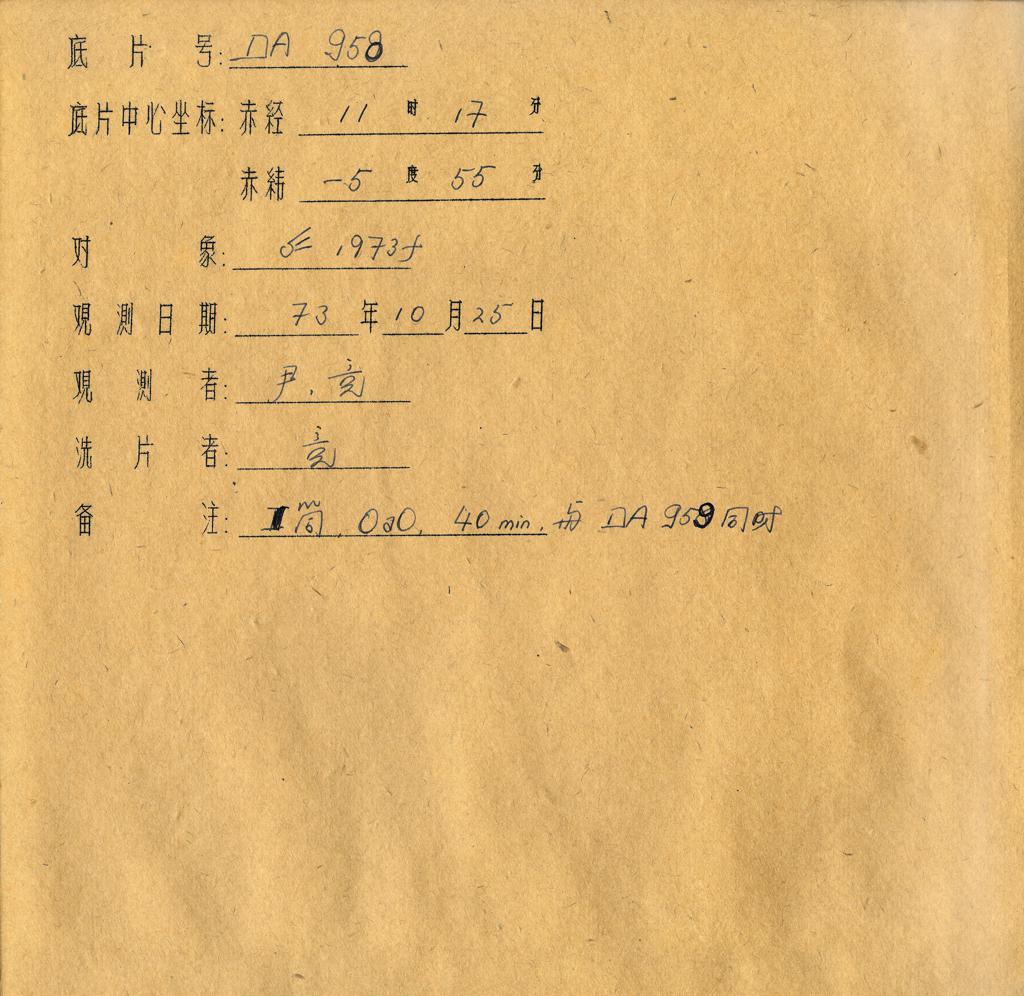 底片号: DA 958
底片中心坐标: 赤经 11 时 17 分
赤纬 -5 度 55 分
对象: 1973f
观测日期: 73 年 10 月 25 日
观测者: 尹.竞
洗片者: 竞
备注: I筒, OaO, 40 min, 与 DA 959 同时